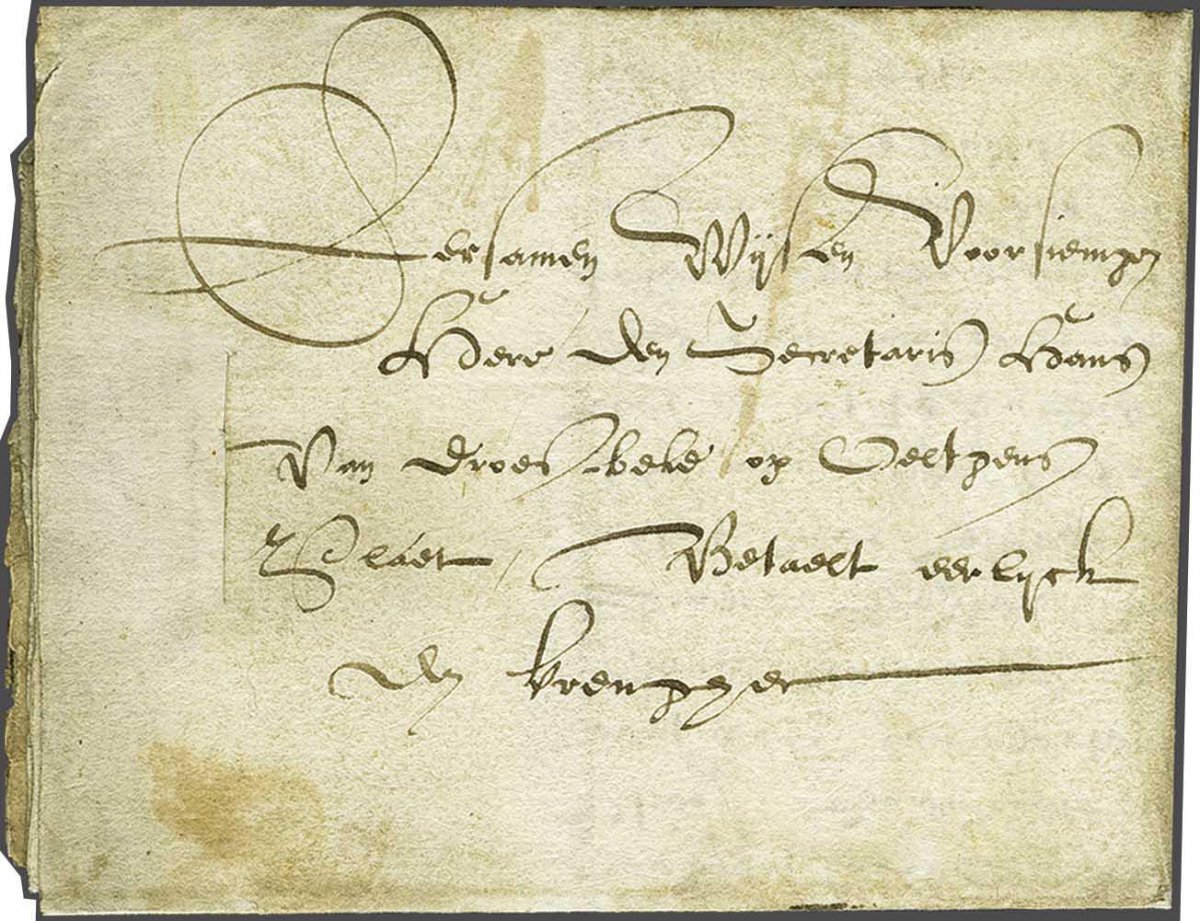 Eersamen Wijsen Voorsienigen
Here den Secretaris Hans
Van Droesbeke op Oeltgens
Plaet Betaelt eerlyck
den brengher